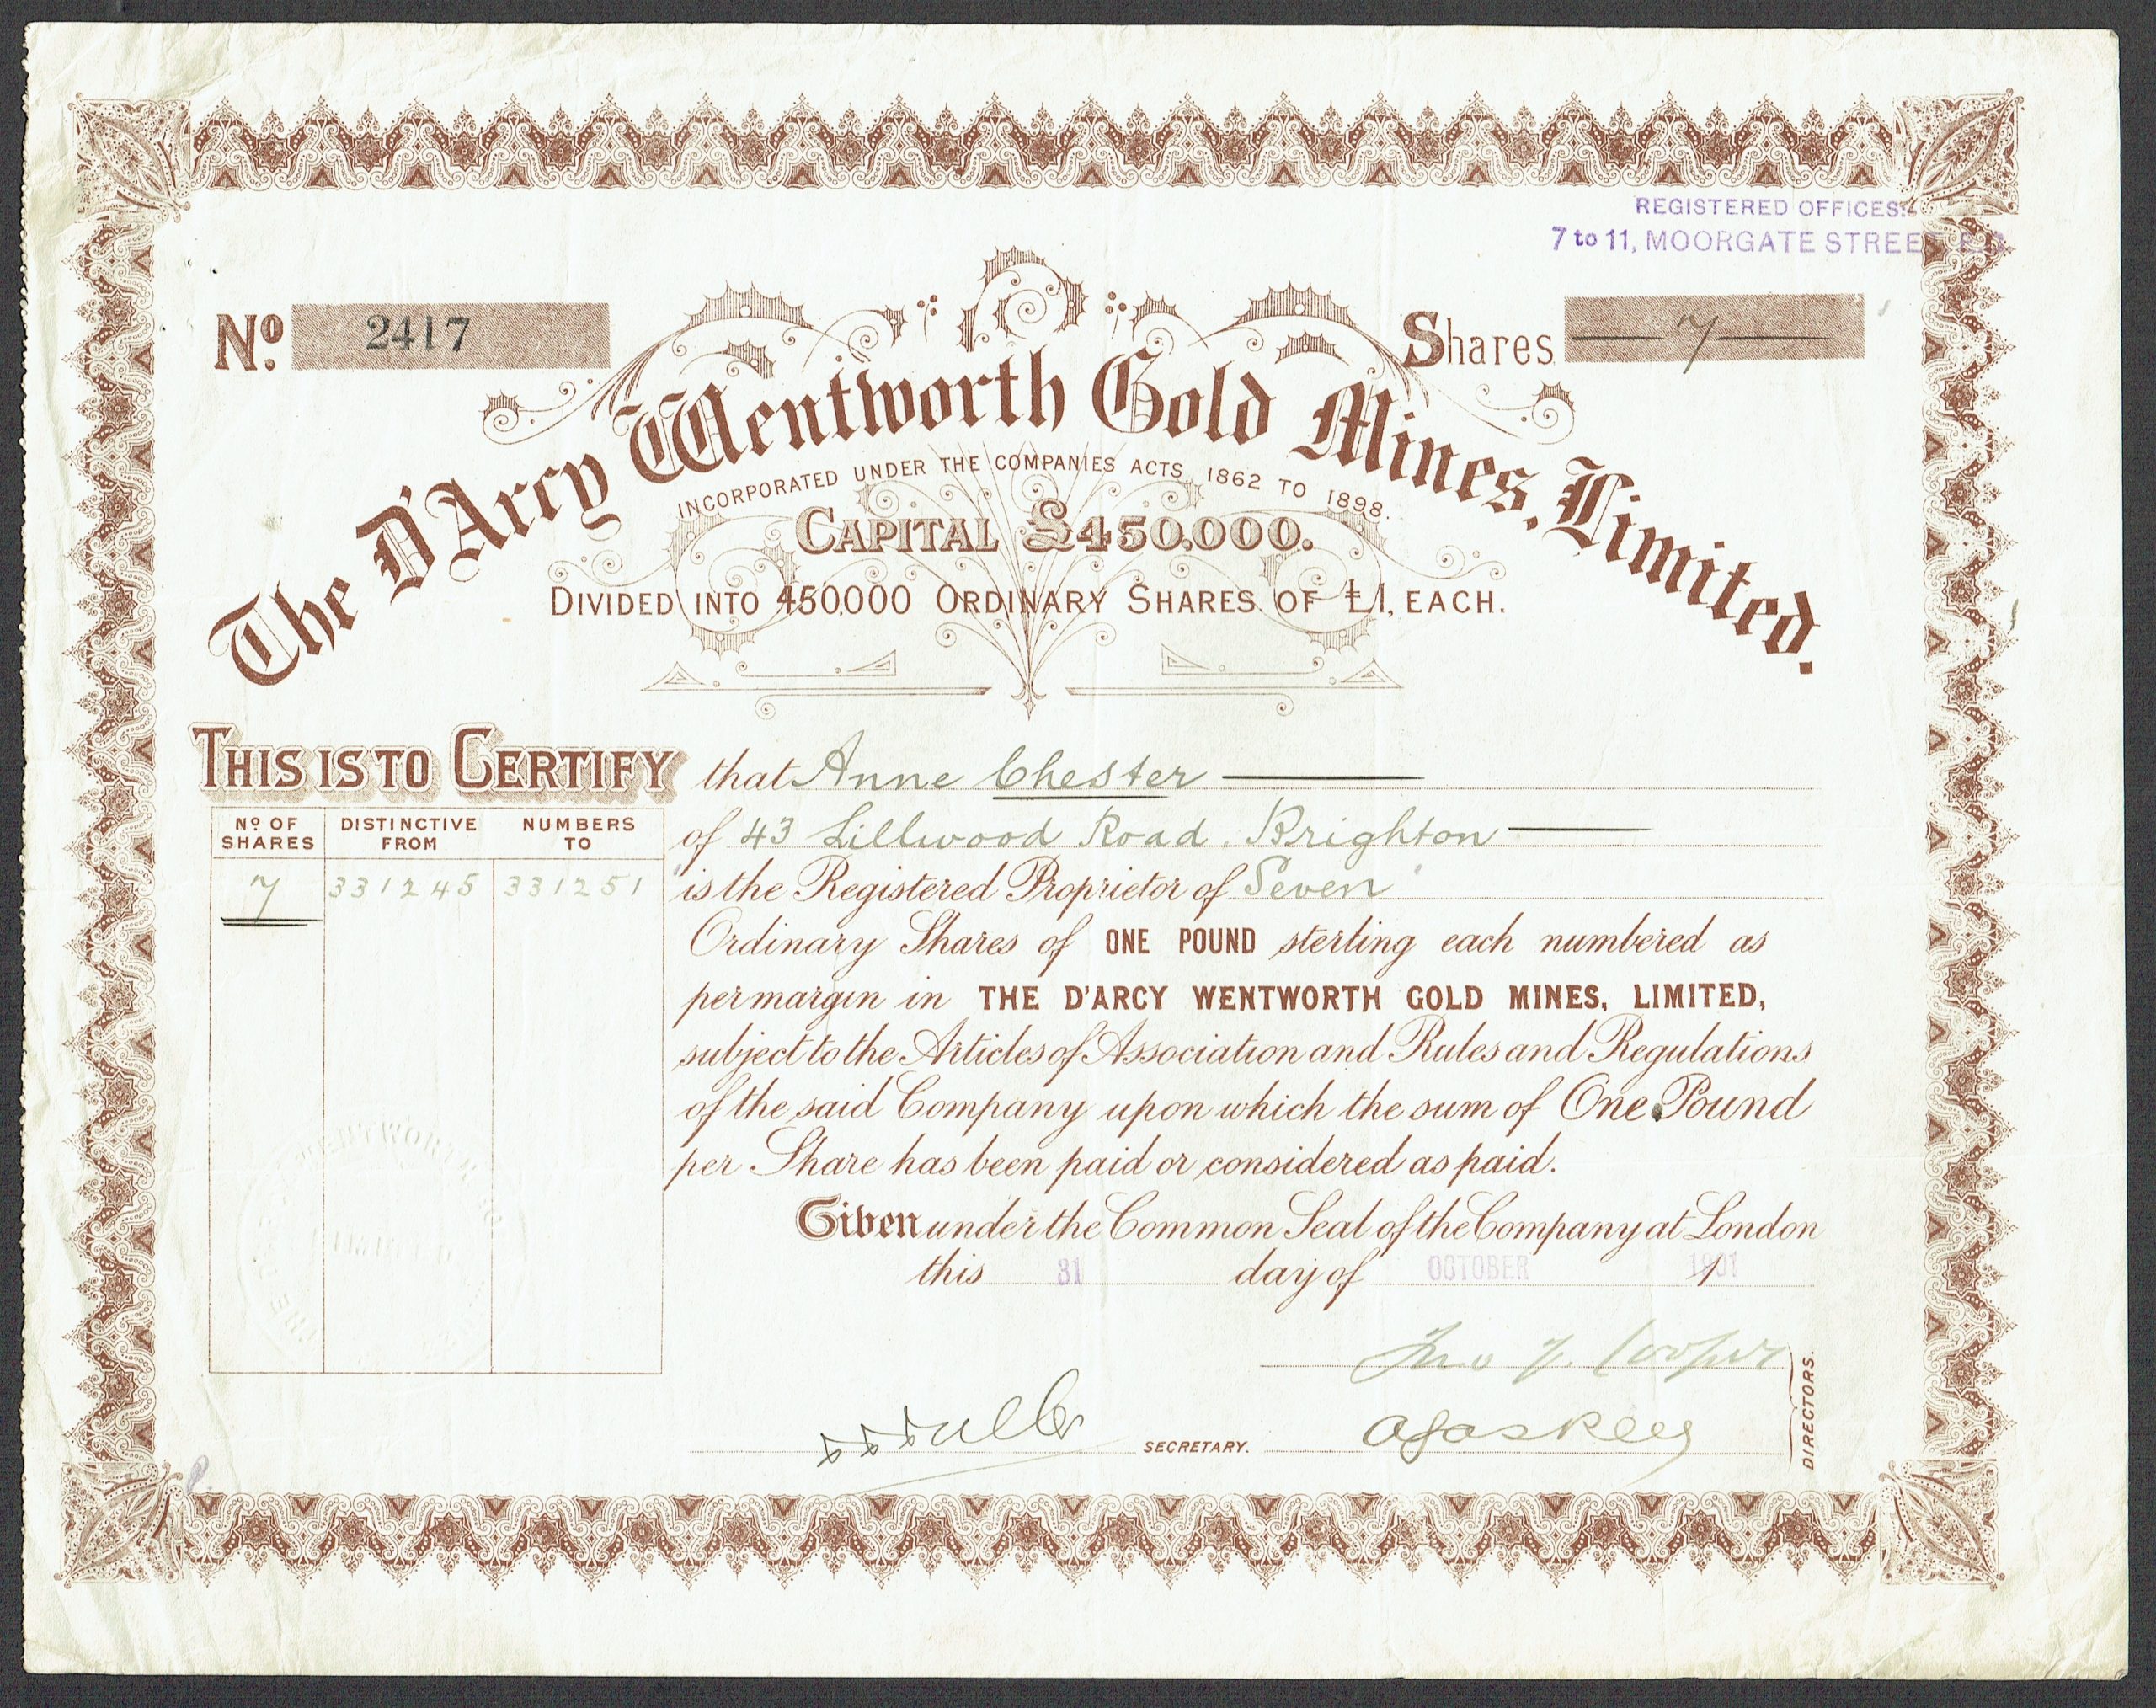 REGISTERED OFFICES:-
7 to 11, MOORGATE STREET, E.C.
No. 2417
Shares — 7 —
The D'Arcy Wentworth Gold Mines, Limited.
INCORPORATED UNDER THE COMPANIES ACTS, 1862 TO 1898.
CAPITAL £450,000.
DIVIDED INTO 450,000 ORDINARY SHARES OF £1, EACH.
THIS IS TO CERTIFY that Anne Chester
of 43 Sillwood Road. Brighton
is the Registered Proprietor of Seven
Ordinary Shares of ONE POUND sterling each numbered as
per margin in THE D'ARCY WENTWORTH GOLD MINES, LIMITED,
subject to the Articles of Association and Rules and Regulations
of the said Company upon which the sum of One Pound
per Share has been paid or considered as paid.
No OF SHARES DISTINCTIVE FROM NUMBERS TO
7 331245 331251
Given under the Common Seal of the Company at London
this 31 day of OCTOBER 1901
Cooper
SECRETARY.
DIRECTORS.